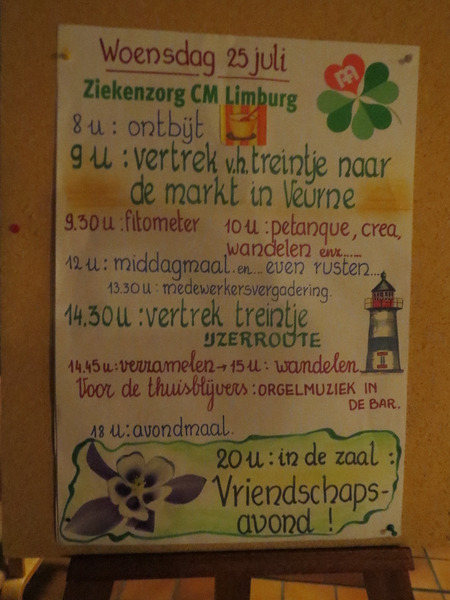 Woensdag 25 juli
Ziekenzorg CM Limburg
8 u : ontbijt
9 u : vertrek v.h. treintje naar
de markt in Veurne
9.30 u : fitometer 10 u : petanque, crea,
wandelen enz......
12 u : middagmaal en... even rusten...
13.30 u : medewerkersvergadering.
14.30 u : vertrek treintje
IJZERROUTE
14.45 u : verzamelen → 15 u : wandelen
Voor de thuisblijvers : ORGELMUZIEK IN
DE BAR.
18 u : avondmaal.
20 u : in de zaal :
Vriendschaps-
avond !